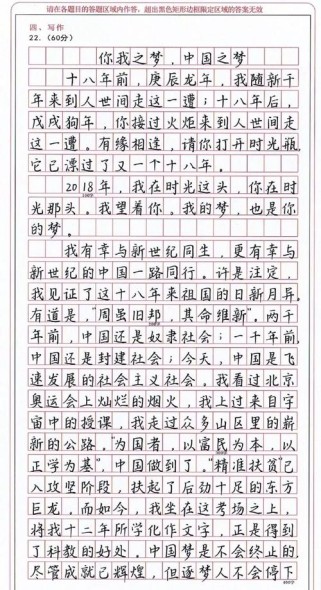 请在各题目的答题区域内作答，超出黑色矩形边框限定区域的答案无效
四、写作
22.（60分）
你我之梦，中国之梦
十八年前，庚辰龙年，我随新千
年来到人世间走这一遭；十八年后，
戊戌狗年，你接过火炬来到人世间走
这一遭。有缘相逢，请你打开时光瓶，
它已漂过了又一个十八年。
2018年，我在时光这头，你在时
光那头。我望着你。我的梦，也是你
的梦。
我有幸与新世纪同生，更有幸与
新世纪的中国一路同行。许是注定，
我见证了这十八年来祖国的日新月异。
有道是，“周虽旧邦，其命维新”。两千
年前，中国还是奴隶社会；一千年前，
中国还是封建社会；今天，中国是飞
速发展的社会主义社会，我看过北京
奥运会上灿烂的烟火，我上过来自宇
宙中的授课，我走过众多山区里的崭
新的公路。“为国者，以富民为本，以
正学为基”，中国做到了。“精准扶贫”已
入攻坚阶段，扶起了后劲十足的东方
巨龙，而如今，我坐在这考场之上，
将我十二年所学化作文字，正是得到
了科教的好处。中国梦是不会终止的，
尽管成就已辉煌，但逐梦人不会停下